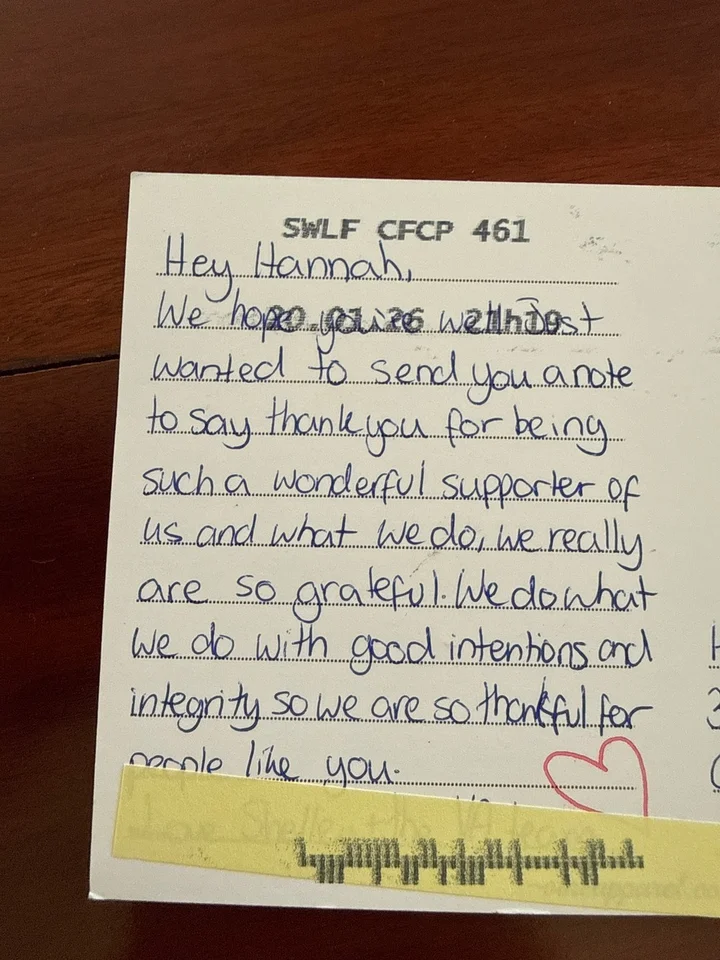 SWLF CFCP 461
Hey Hannah,
20.01.26 21h19
We hope you're well. Just
wanted to send you a note
to say thank you for being
such a wonderful supporter of
us and what we do, we really
are so grateful. We do what
we do with good intentions and
integrity so we are so thankful for
people like you.
Love